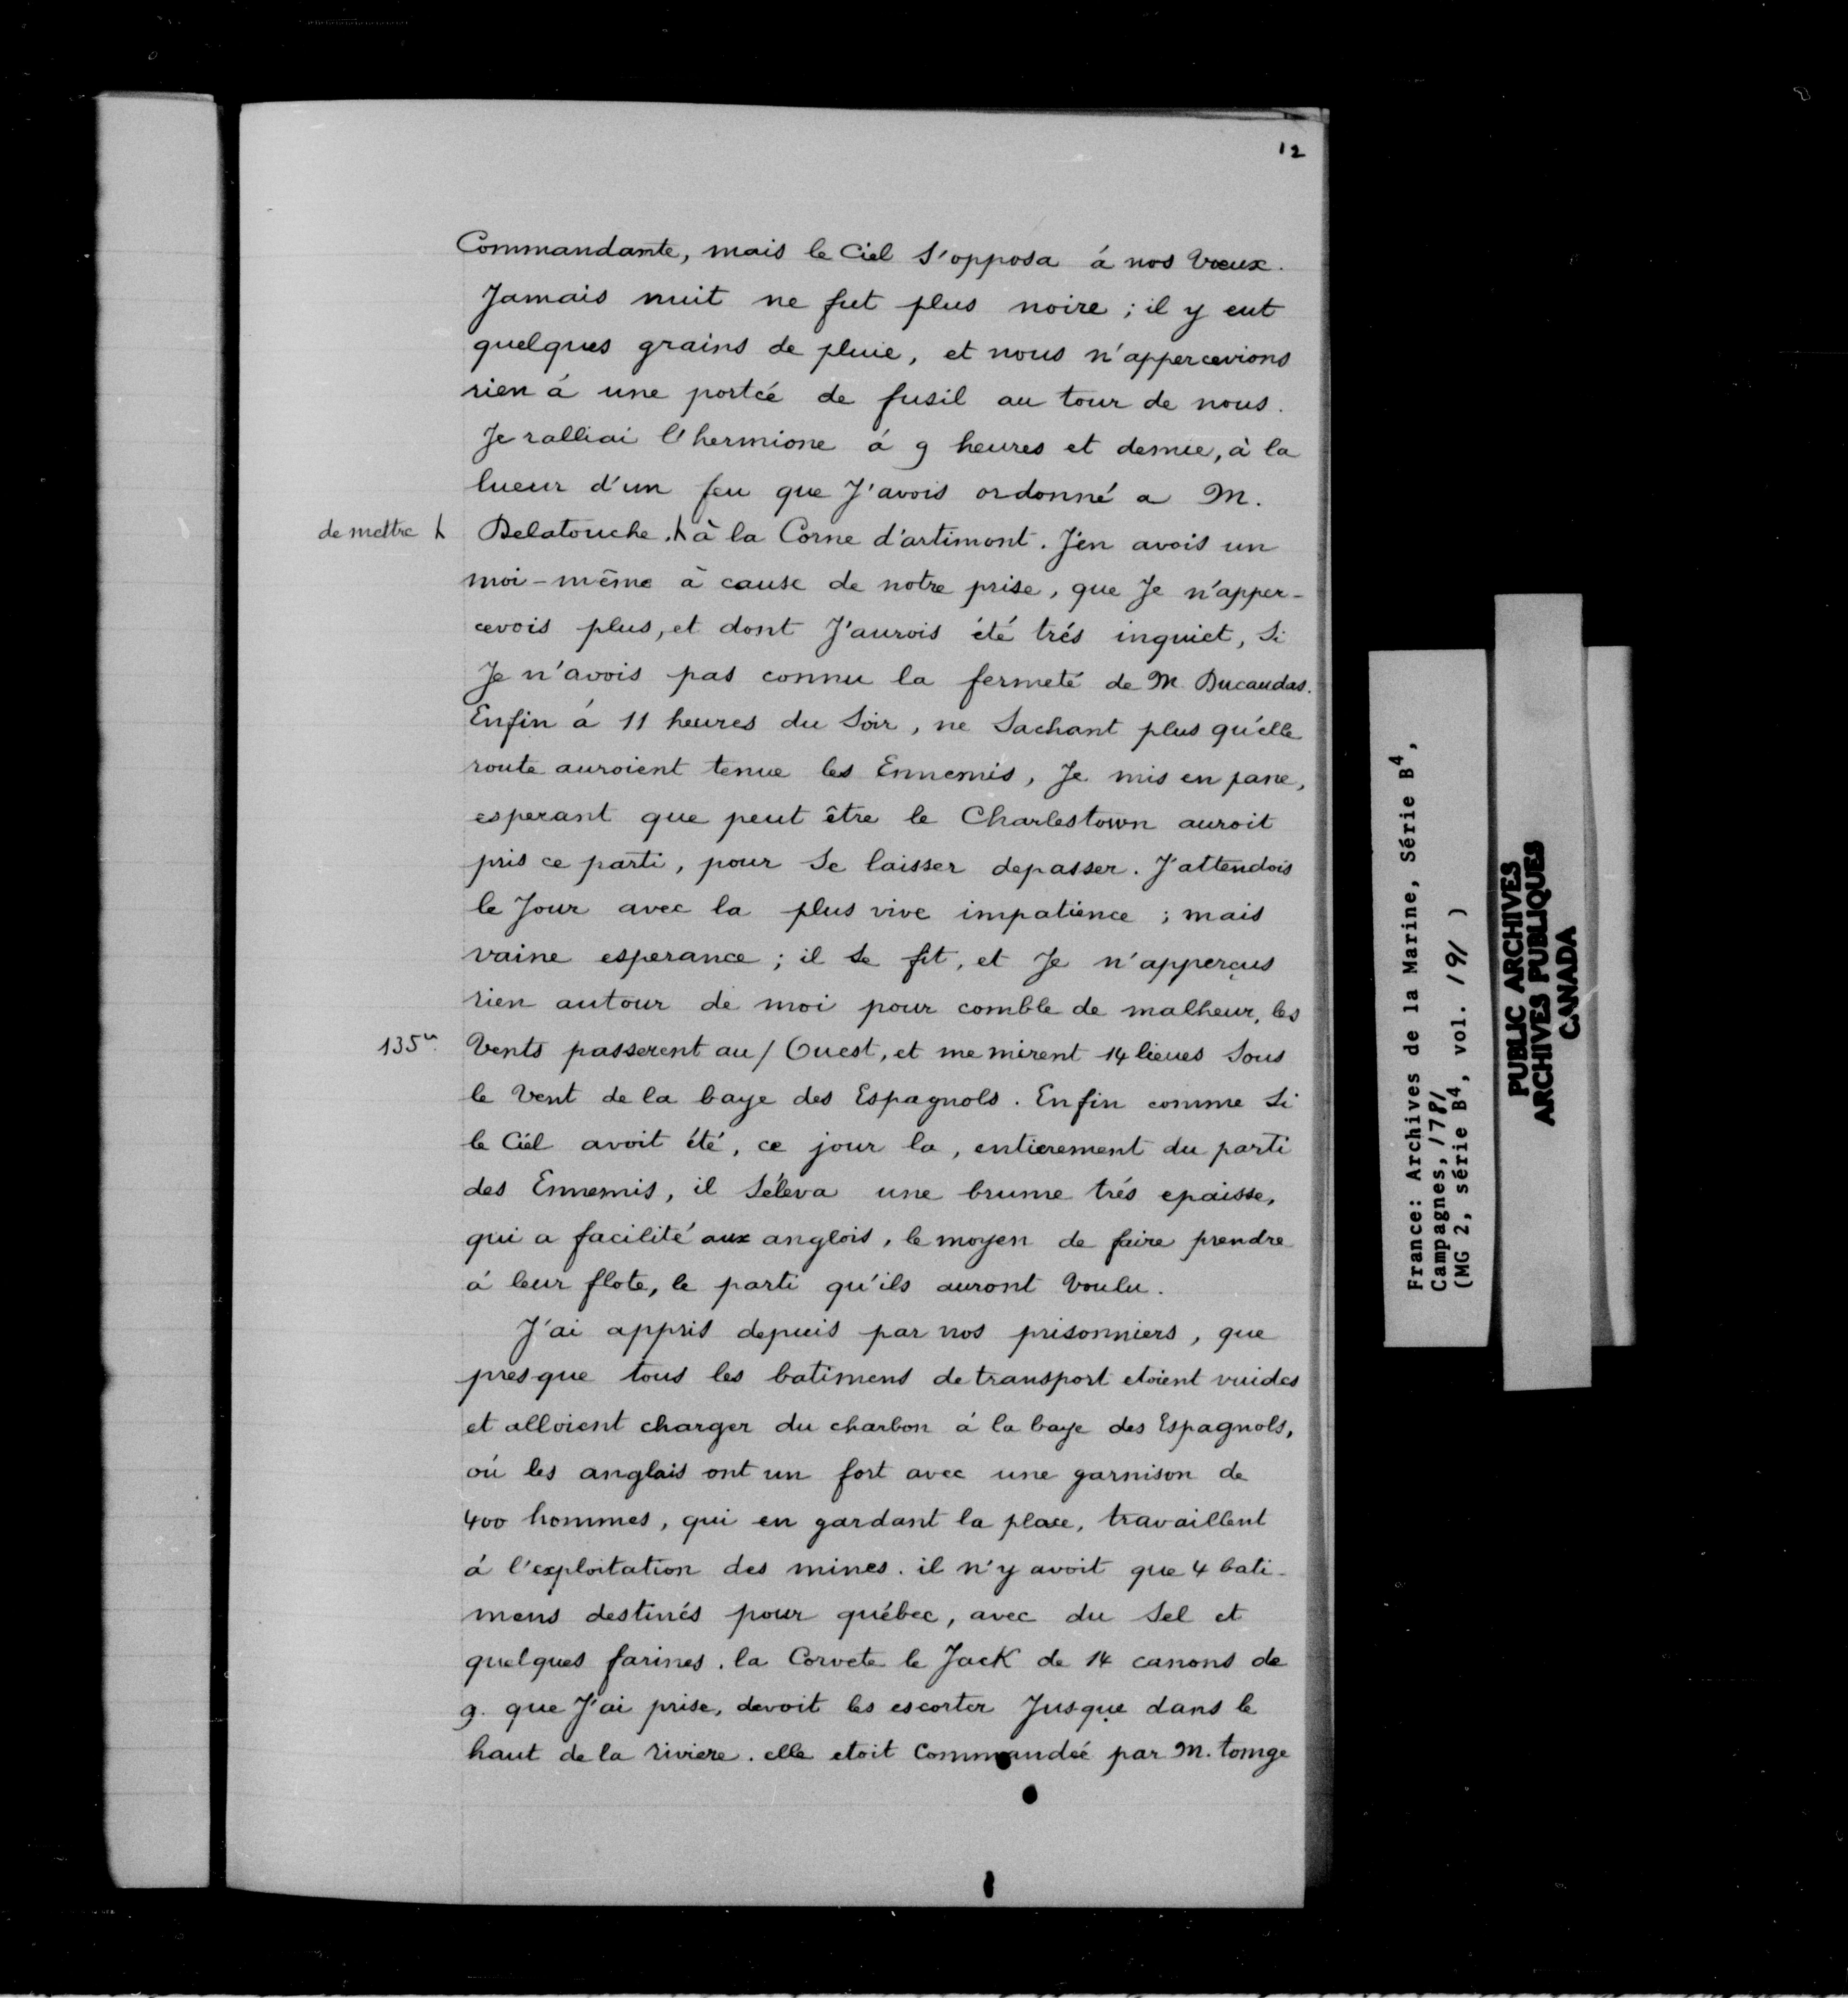 12
Commandante, mais le Ciel S'opposa á nos Vœux.
Jamais nuit ne fut plus noire ; il y eut
quelques grains de pluie, et nous n'appercevions
rien á une portée de fusil au tour de nous.
Je ralliai l'hermione á 9 heures et demie, à la
lueur d'un feu que J'avois ordonné a M.
de mettre Delatouche. à la Corne d'artimont. J'en avois un
moi-même à cause de notre prise, que Je n'apper-
cevois plus, et dont J'aurois été trés inquiet, Si
Je n'avois pas connu la fermeté de M. Ducaudas.
Enfin á 11 heures du Soir, ne Sachant plus qu'elle
route auroient tenue les Ennemis, Je mis en pane,
esperant que peut être le Charlestown auroit
pris ce parti, pour Se laisser depasser. J'attendois
le Jour avec la plus vive impatience ; mais
vaine esperance ; il Se fit, et Je n'apperçus
rien autour de moi pour comble de malheur, les
135 Vents passerent au / Ouest, et me mirent 14 lieues Sous
le Vent de la baye des Espagnols. Enfin comme Si
le Ciél avoit été, ce jour la, entierement du parti
des Ennemis, il S'éleva une brume trés epaisse,
qui a facilité aux anglois, le moyen de faire prendre
á leur flote, le parti qu'ils auront Voulu.
J'ai appris depuis par nos prisonniers, que
presque tous les batimens de transport etoient vuides
et alloient charger du charbon á la baye des Espagnols,
oú les anglais ont un fort avec une garnison de
400 hommes, qui en gardant la place, travaillent
á l'exploitation des mines. il n'y avoit que 4 bati-
mens destinés pour québec, avec du Sel et
quelques farines. la Corvete le Jack de 14 canons de
9. que J'ai prise, devoit les escorter Jusque dans le
haut de la riviere. elle etoit Commandée par M. tonge
France: Archives de la Marine, Série B4,
Campagnes, 1781
(MG 2, série B4, vol. 191 )
PUBLIC ARCHIVES
ARCHIVES PUBLIQUES
CANADA